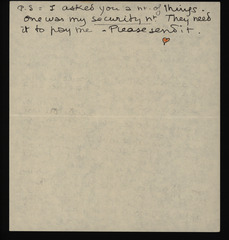 P.S: I asked you a nr. of things.
One was my security nr. They need
it to pay me - Please send it.